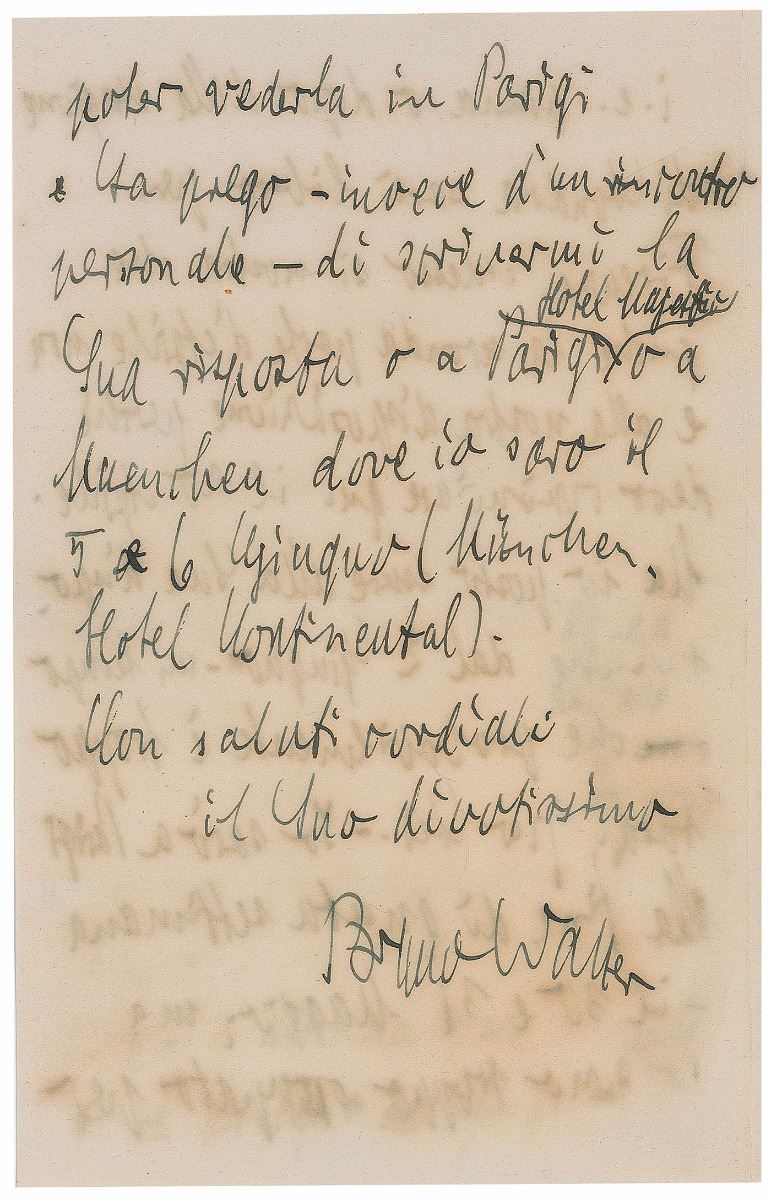 poter vederla in Parigi
e La prego – invece d'un rincontro
personale – di scrivermi la
Hotel Majestic
Sua risposta o a Parigi o a
Muenchen dove io saro il
5 e 6 Giugno (München,
Hotel Continental).
Con saluti cordiali
il Suo divotissimo
Bruno Walter